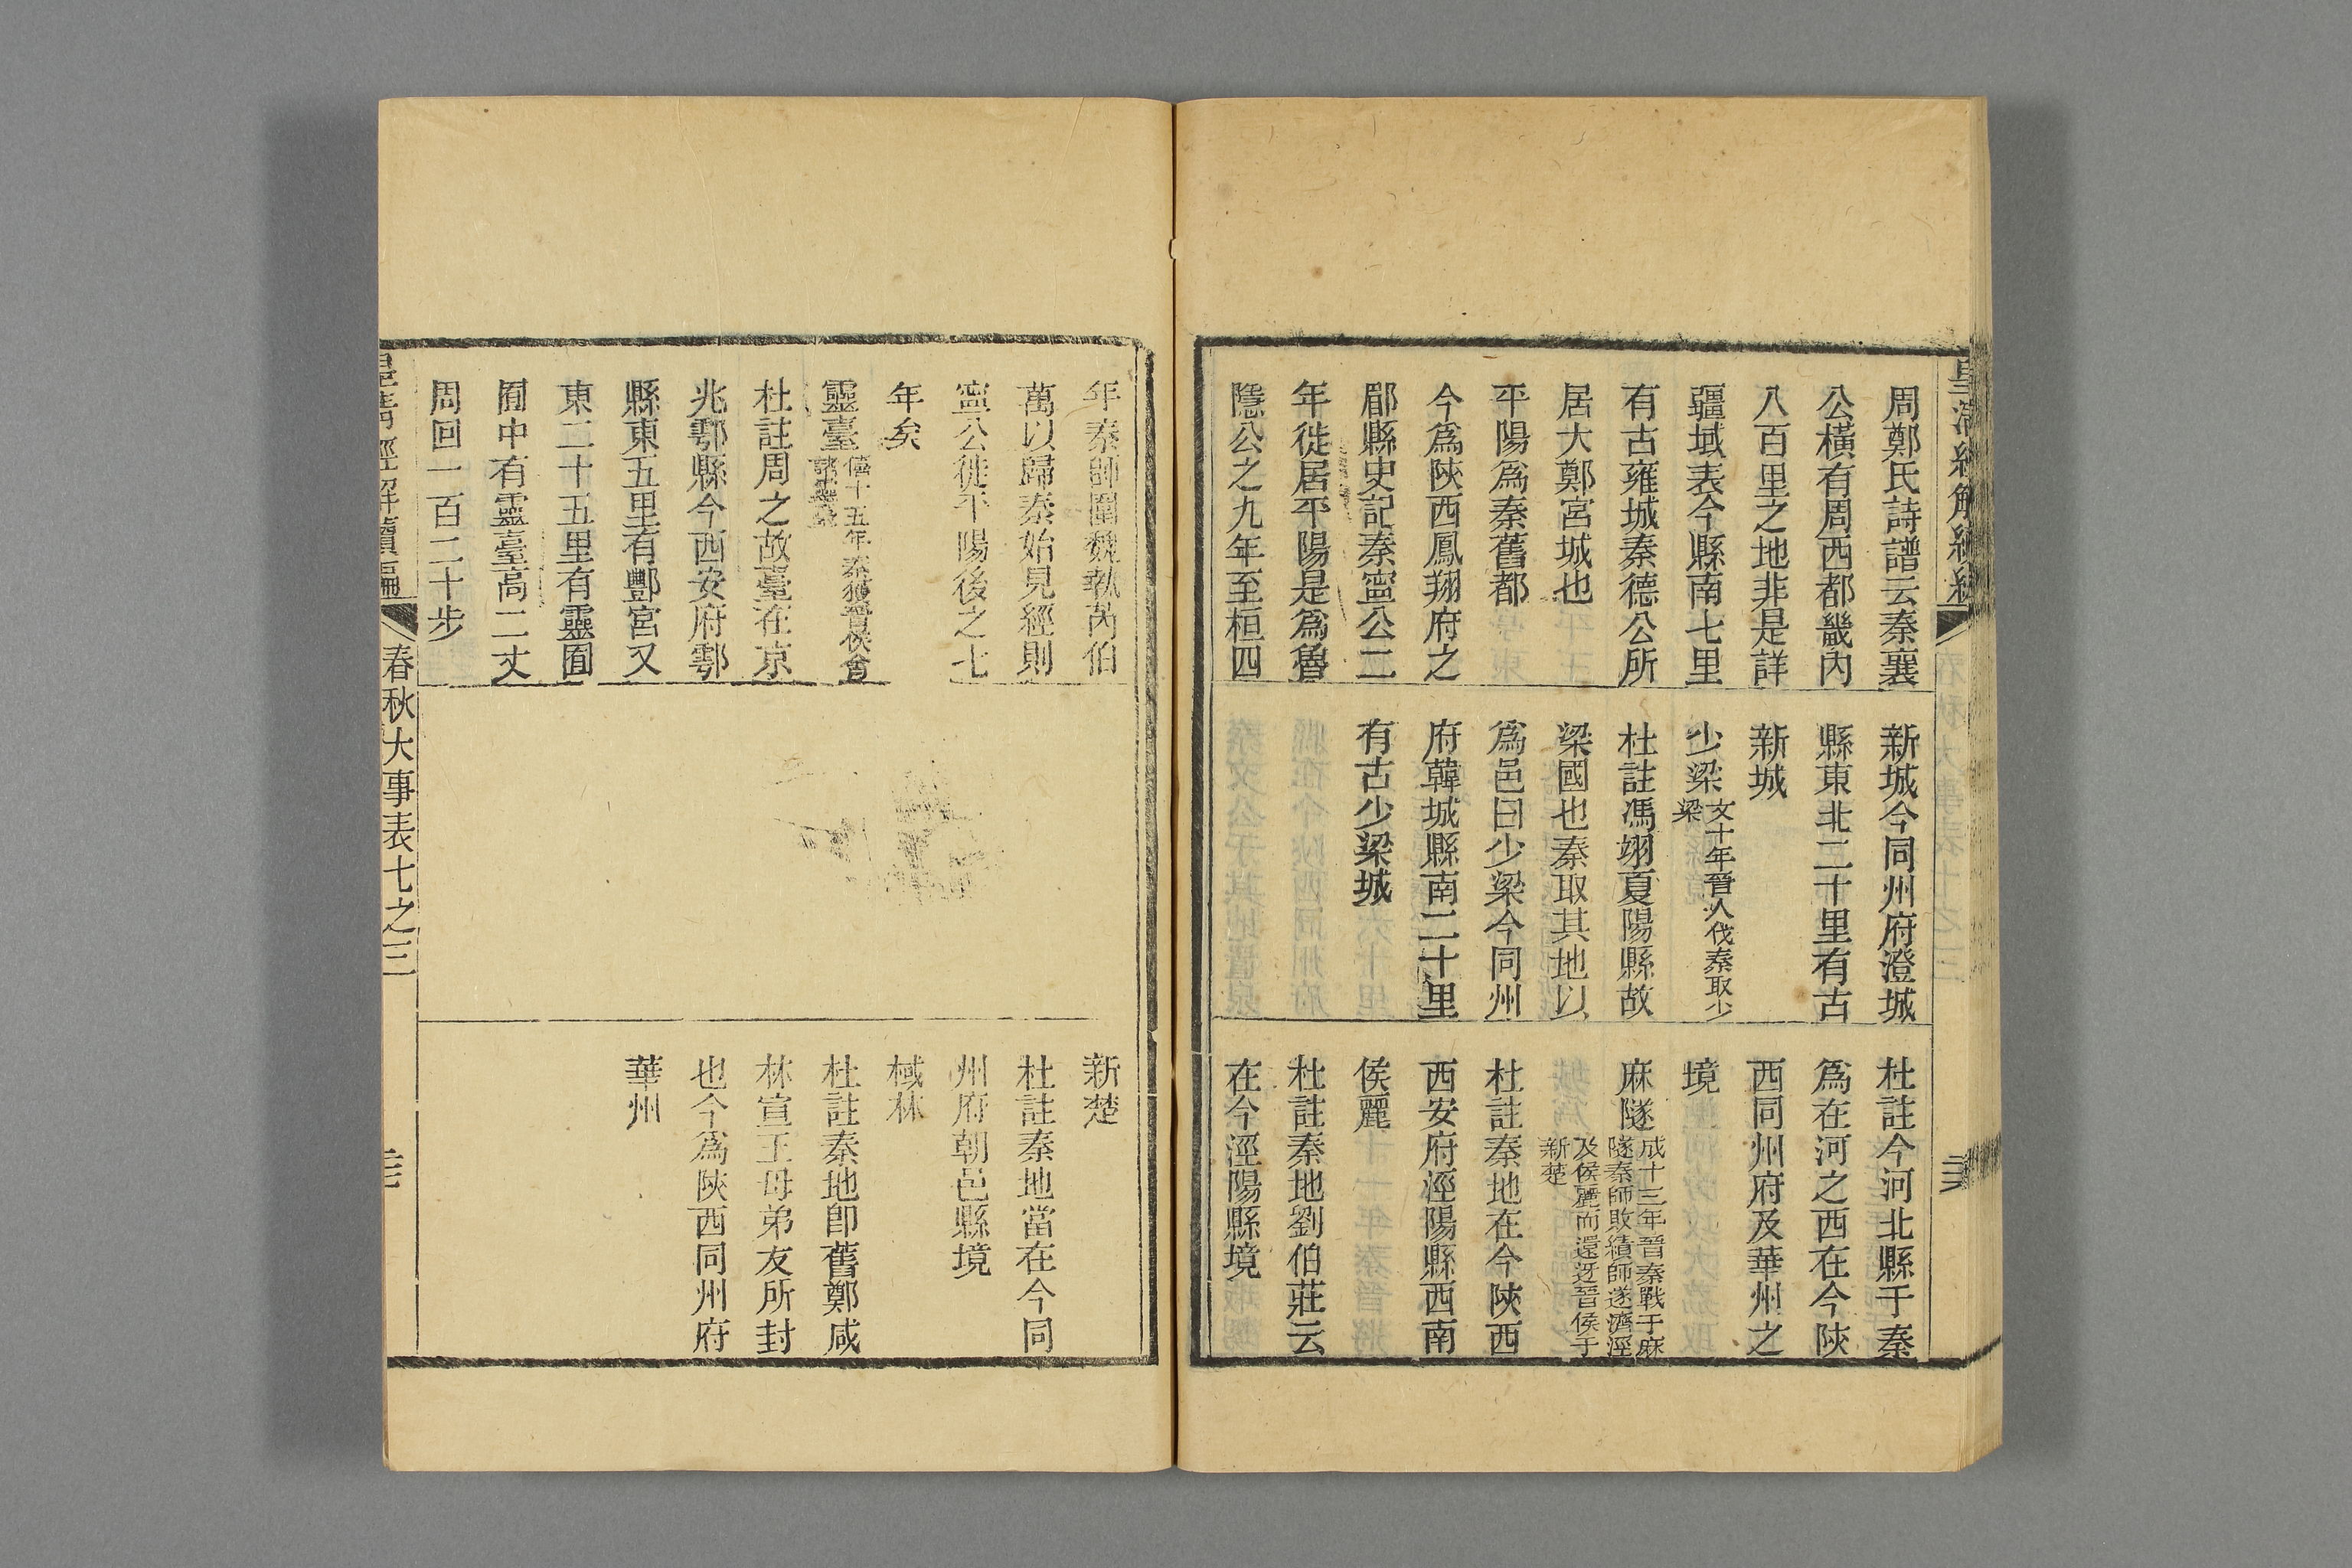 周鄭氏詩譜云秦襄
公橫有周西都畿內
八百里之地非是詳
疆域表今縣南七里
有古雍城秦德公所
居大鄭宮城也
平陽為秦舊都
今為陝西鳳翔府之
郿縣史記秦寧公二
年徙居平陽是為魯
隱公之九年至桓四
新城今同州府澄城
縣東北二十里有古
新城
少梁文十年晉人伐秦取少
梁
杜註馮翊夏陽縣故
梁國也秦取其地以
為邑曰少梁今同州
府韓城縣南二十里
有古少梁城
杜註今河北縣于秦
為在河之西在今陝
西同州府及華州之
境
麻隧成十三年晉秦戰于麻
隧秦師敗績師遂濟涇
及侯麗而還迓晉侯于
新楚
杜註秦地在今陝西
西安府涇陽縣西南
侯麗
杜註秦地劉伯莊云
在今涇陽縣境
年秦師圍魏執芮伯
萬以歸秦始見經則
寧公徙平陽後之七
年矣
靈臺僖十五年秦獲晉侯舍
諸靈臺
杜註周之故臺在京
兆鄠縣今西安府鄠
縣東五里有酆宮又
東二十五里有靈囿
囿中有靈臺高二丈
周回一百二十步
新楚
杜註秦地當在今同
州府朝邑縣境
棫林
杜註秦地卽舊鄭咸
林宣王母弟友所封
也今為陝西同州府
華州
皇清經解續編
春秋大事表七之三